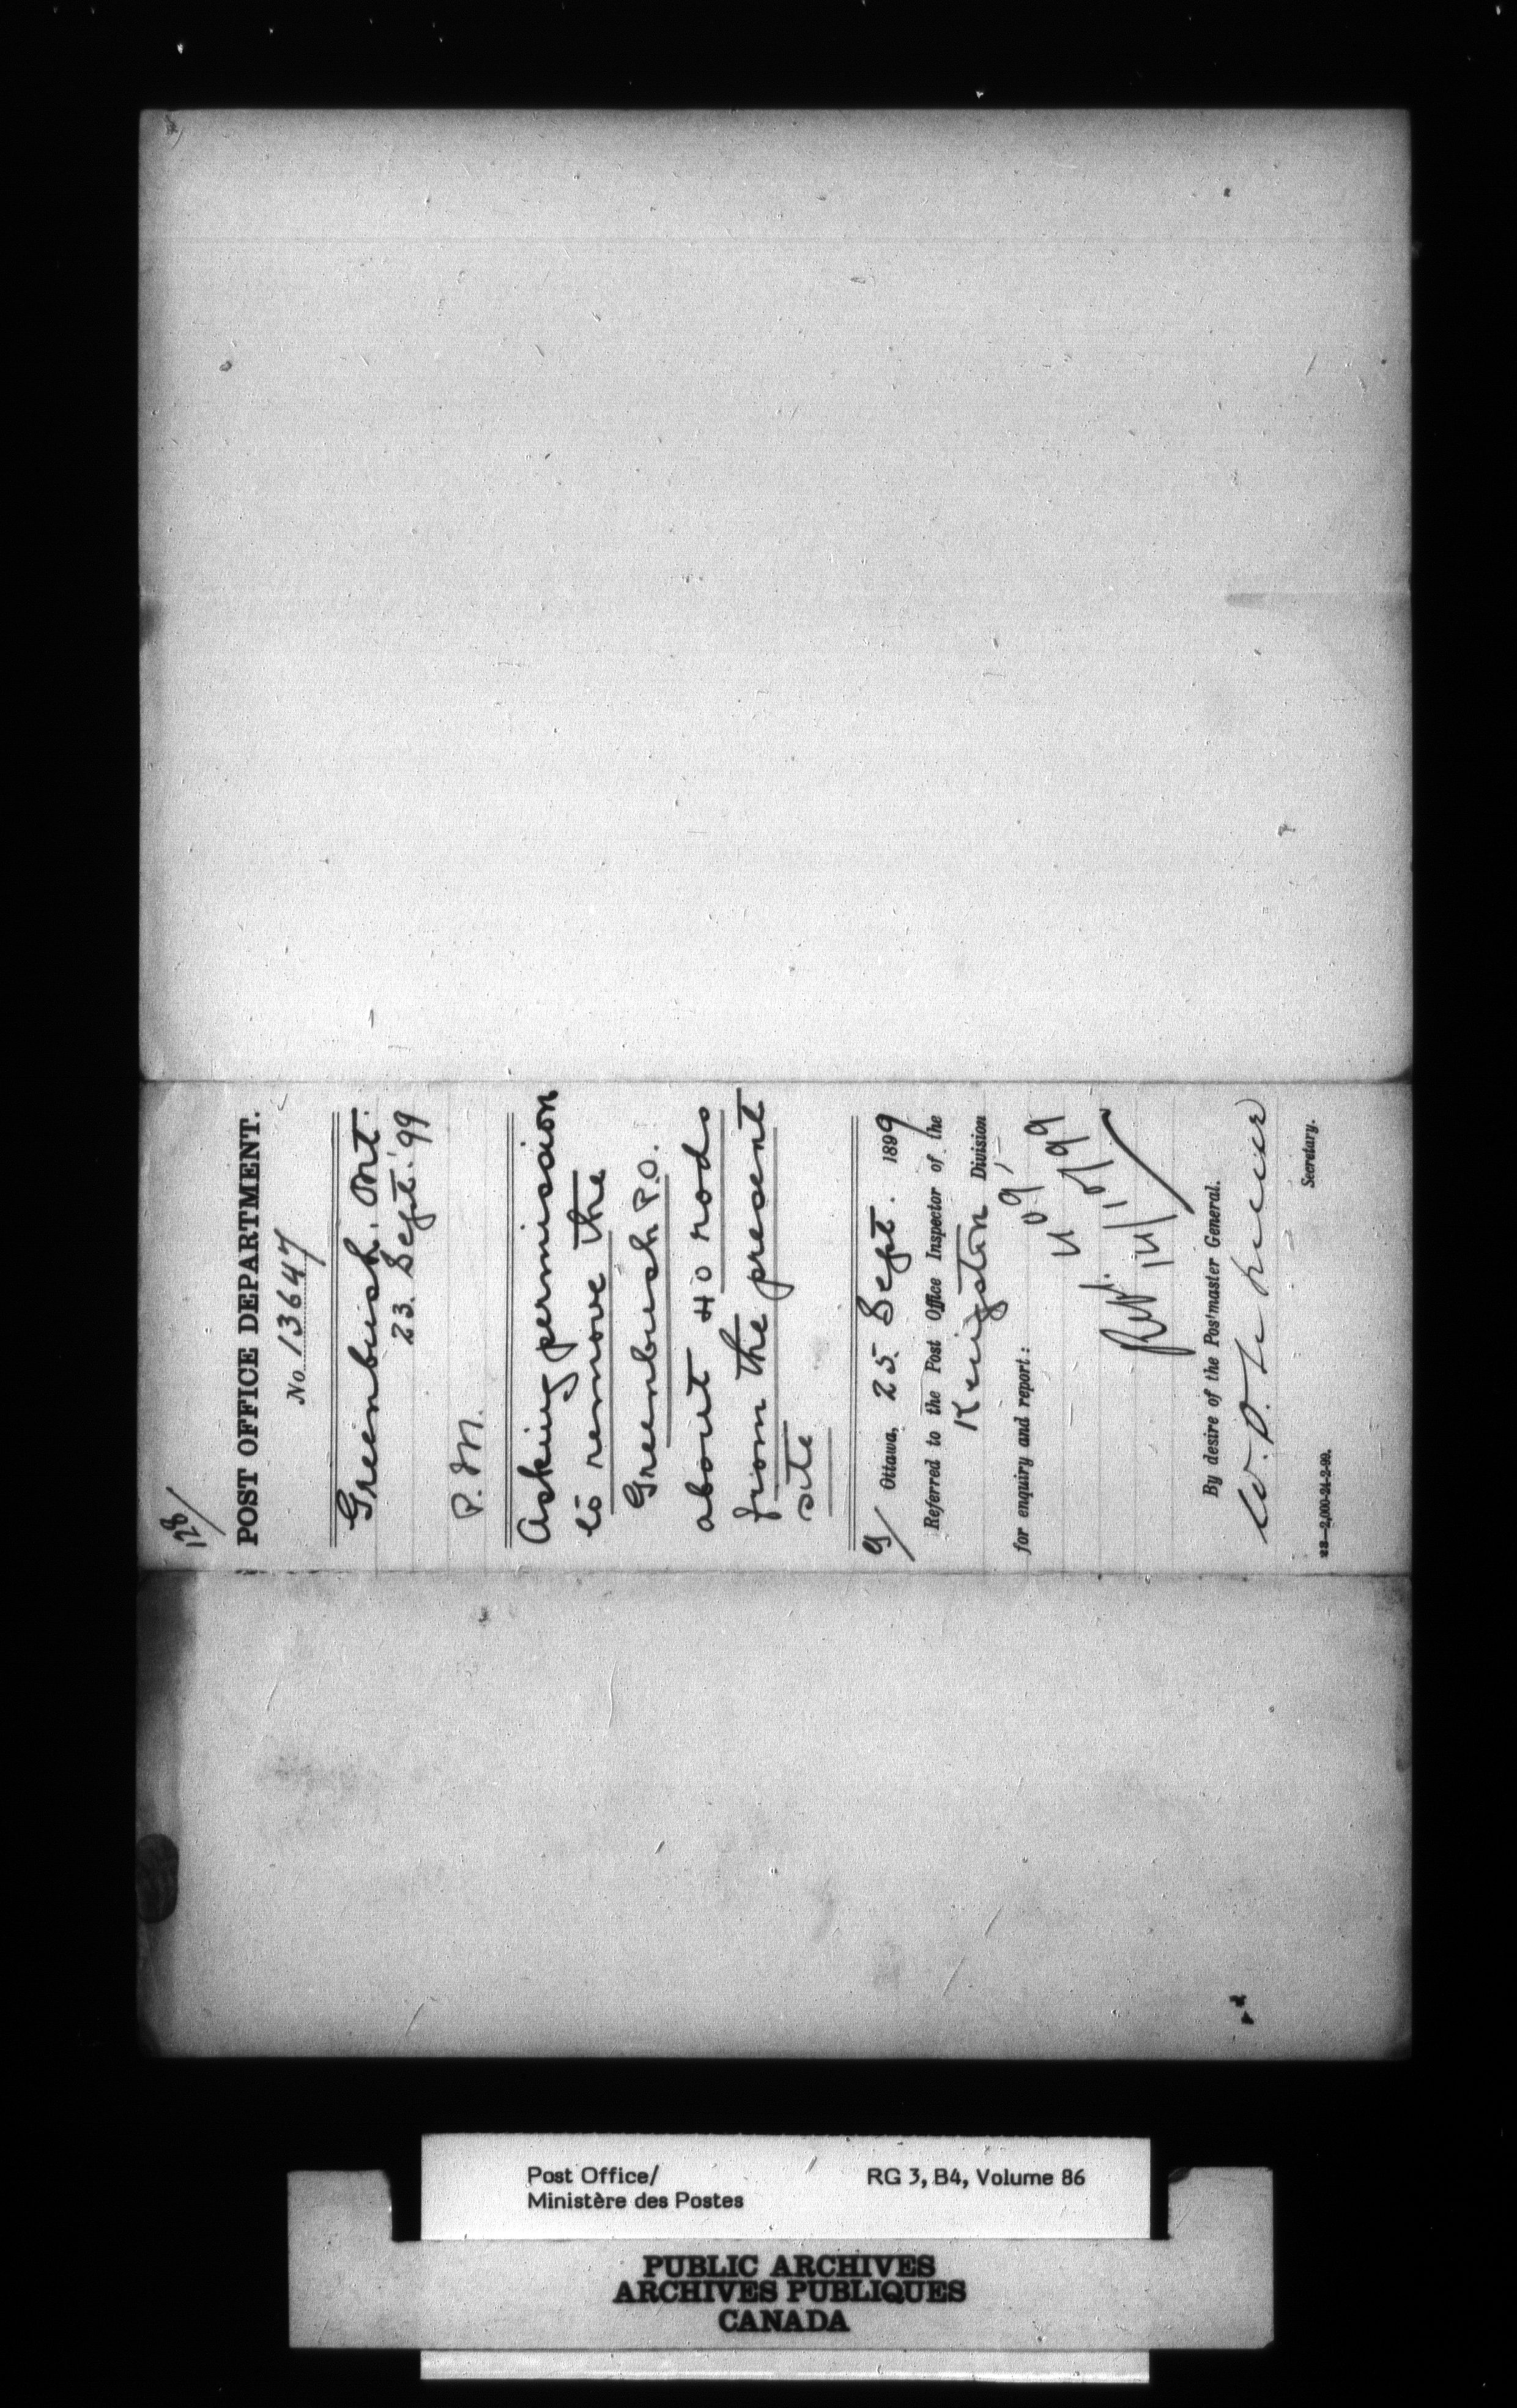 128/
POST OFFICE DEPARTMENT.
No. 13647
Greenbush. Ont.
23. Sept. '99
P. M.
Asking permission
to remove the
Greenbush P.O.
about 40 rods
from the present
site
9/ Ottawa, 25. Sept. 1899
Referred to the Post Office Inspector of the
Kingston Division
for enquiry and report:
By desire of the Postmaster General.
W. D.
Secretary.
23—2,000-24-2-99.
Post Office/
Ministère des Postes
RG 3, B4, Volume 86
PUBLIC ARCHIVES
ARCHIVES PUBLIQUES
CANADA